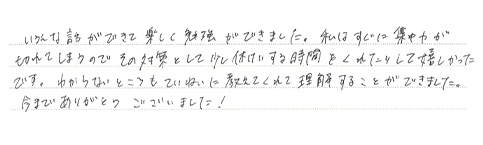 いろんな話ができて楽しく勉強ができました。私はすぐに集中力が
切れてしまうのでその対策として少し休けいする時間をくれたりして嬉しかった
です。わからないところもていねいに教えてくれて理解することができました。
今までありがとうございました！